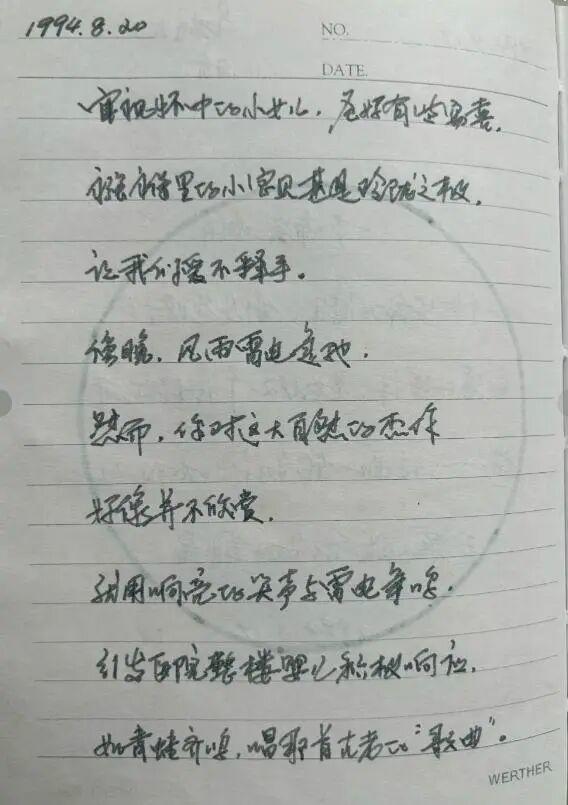 1994.8.20
NO.
DATE.
审视怀中的小女儿,有些惊喜,
襁褓里的小宝贝甚是玲珑之极,
让我们爱不释手。
傍晚,风雨雷电交加,
然而,你对这大自然的杰作
好像并不欣赏,
就用响亮的哭声与雷电争鸣,
引发医院整楼婴儿积极响应,
如青蛙齐鸣,唱那首古老的“歌曲”。
WERTHER